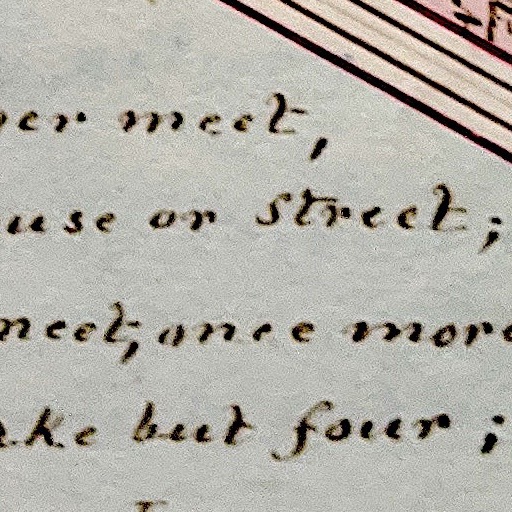 er meet,
use or street;
meet; once more
ake but four;